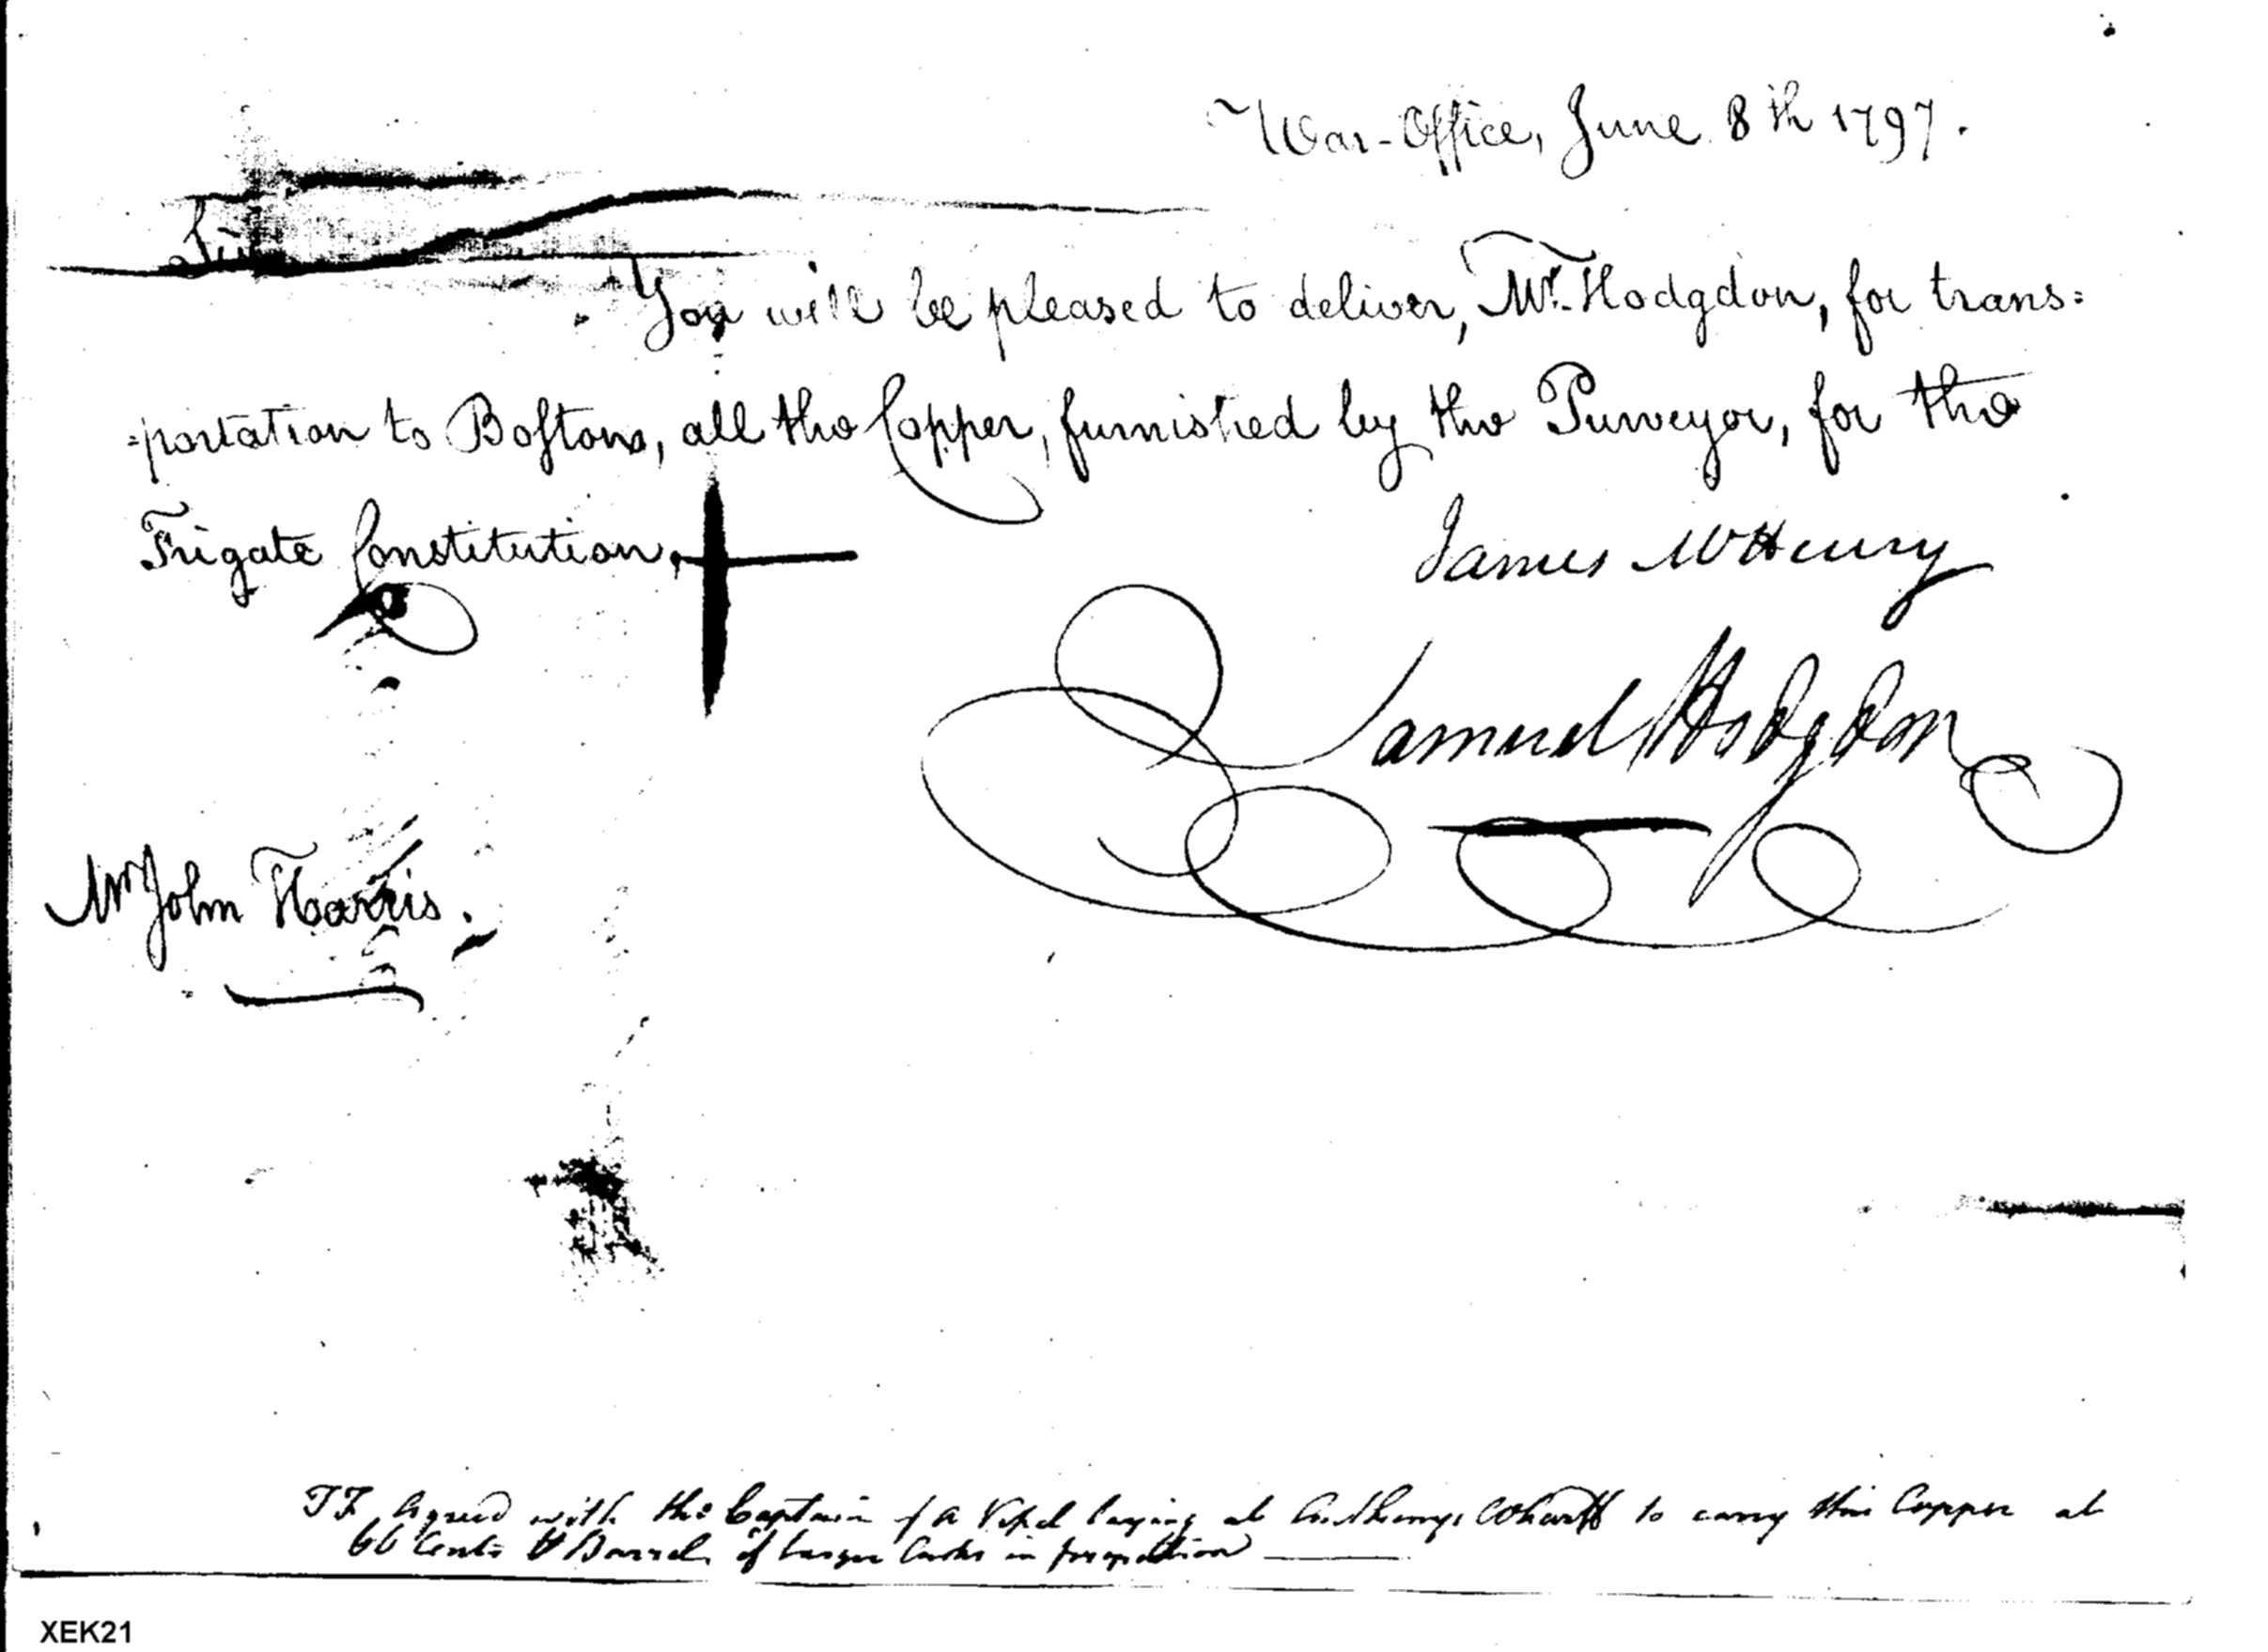 War-Office, June 8th 1797.
Sir
You will be pleased to deliver, Mr. Hodgdon, for trans=
=portation to Boston, all the Copper, furnished by the Purveyor, for the
Frigate Constitution.
James McHenry
Samuel Hodgdon
Mr John Harris.
Agreed with the Captain of a Vessel laying at Anthonys Wharff to carry this Copper at
66 Cents Barrel. if larger Casks in proportion
XEK21